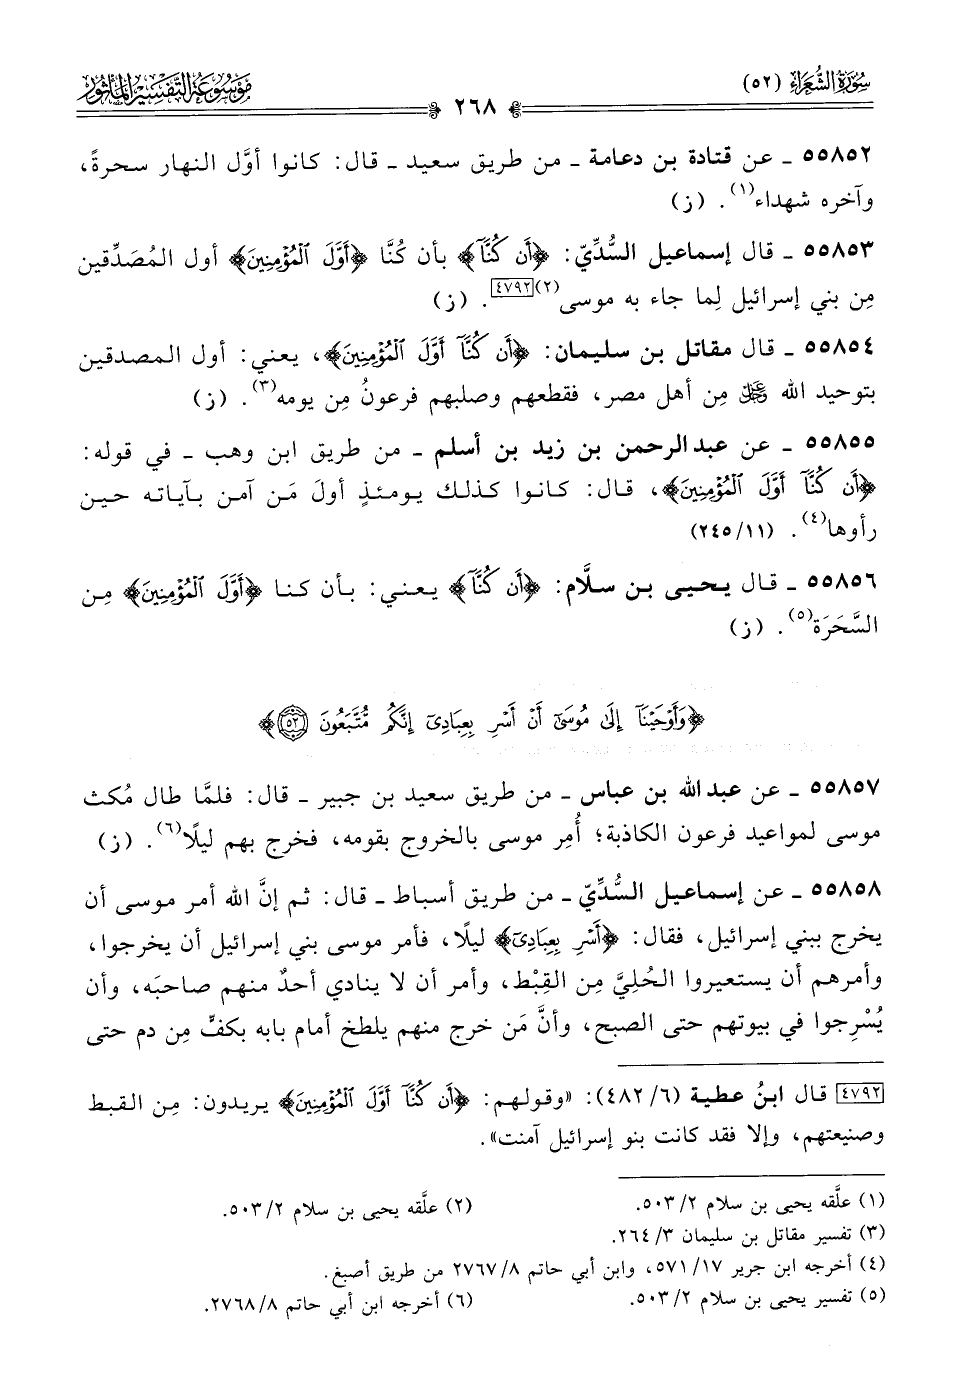 سُورَةُ الشُّعَرَاءِ (٥٢)
٢٦٨
مَوْسُوعَةُ التَّفْسِيرِ المَأْثُورِ
٥٥٨٥٢ ـ عن قتادة بن دعامة ـ من طريق سعيد ـ قال: كانوا أوَّل النهار سحرةً،
وآخره شهداء(١). (ز)
٥٥٨٥٣ ـ قال إسماعيل السُّدِّيّ: ﴿أَن كُنَّآ﴾ بأن كُنَّا ﴿أَوَّلَ ٱلْمُؤْمِنِينَ﴾ أول المُصَدِّقين
مِن بني إسرائيل لِما جاء به موسى(٢)[٤٧٩٢]. (ز)
٥٥٨٥٤ ـ قال مقاتل بن سليمان: ﴿أَن كُنَّآ أَوَّلَ ٱلْمُؤْمِنِينَ﴾، يعني: أول المصدقين
بتوحيد الله ﷿ مِن أهل مصر، فقطعهم وصلبهم فرعونُ مِن يومه(٣). (ز)
٥٥٨٥٥ ـ عن عبد الرحمن بن زيد بن أسلم ـ من طريق ابن وهب ـ في قوله:
﴿أَن كُنَّآ أَوَّلَ ٱلْمُؤْمِنِينَ﴾، قال: كانوا كذلك يومئذٍ أولَ مَن آمن بآياته حين
رأوها(٤). (١١/ ٢٤٥)
٥٥٨٥٦ ـ قال يحيى بن سلَّام: ﴿أَن كُنَّآ﴾ يعني: بأن كنا ﴿أَوَّلَ ٱلْمُؤْمِنِينَ﴾ مِن
السَّحَرَة(٥). (ز)
﴿وَأَوْحَيْنَآ إِلَىٰ مُوسَىٰٓ أَنْ أَسْرِ بِعِبَادِىٓ إِنَّكُم مُّتَّبَعُونَ ٥٢﴾
٥٥٨٥٧ ـ عن عبد الله بن عباس ـ من طريق سعيد بن جبير ـ قال: فلمَّا طال مُكث
موسى لمواعيد فرعون الكاذبة؛ أُمِر موسى بالخروج بقومه، فخرج بهم ليلًا(٦). (ز)
٥٥٨٥٨ ـ عن إسماعيل السُّدِّيّ ـ من طريق أسباط ـ قال: ثم إنَّ الله أمر موسى أن
يخرج ببني إسرائيل، فقال: ﴿أَسْرِ بِعِبَادِىٓ﴾ ليلًا، فأمر موسى بني إسرائيل أن يخرجوا،
وأمرهم أن يستعيروا الحُلِيَّ مِن القِبْط، وأمر أن لا ينادي أحدٌ منهم صاحبَه، وأن
يُسْرِجوا في بيوتهم حتى الصبح، وأنَّ مَن خرج منهم يلطخ أمام بابه بكفٍّ مِن دم حتى
[٤٧٩٢] قال ابنُ عطية (٦/ ٤٨٢): «وقولهم: ﴿أَن كُنَّآ أَوَّلَ ٱلْمُؤْمِنِينَ﴾ يريدون: مِن القبط
وصنيعتهم، وإلا فقد كانت بنو إسرائيل آمنت».
(١) علَّقه يحيى بن سلام ٢/ ٥٠٣. (٢) علَّقه يحيى بن سلام ٢/ ٥٠٣.
(٣) تفسير مقاتل بن سليمان ٣/ ٢٦٤.
(٤) أخرجه ابن جرير ١٧/ ٥٧١، وابن أبي حاتم ٨/ ٢٧٦٧ من طريق أصبغ.
(٥) تفسير يحيى بن سلام ٢/ ٥٠٣. (٦) أخرجه ابن أبي حاتم ٨/ ٢٧٦٨.